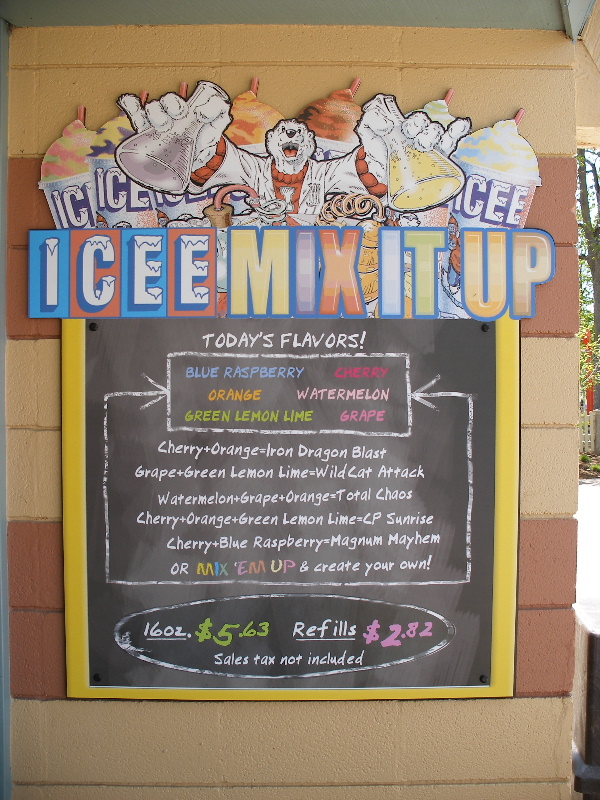 ICEE ICEE
ICEE MIX IT UP
TODAY'S FLAVORS!
BLUE RASPBERRY CHERRY
ORANGE WATERMELON
GREEN LEMON LIME GRAPE
Cherry+Orange=Iron Dragon Blast
Grape+Green Lemon Lime=WildCat Attack
Watermelon+Grape+Orange=Total Chaos
Cherry+Orange+Green Lemon Lime=CP Sunrise
Cherry+Blue Raspberry=Magnum Mayhem
OR MIX 'EM UP & create your own!
16oz. $5.63 Refills $2.82
Sales tax not included